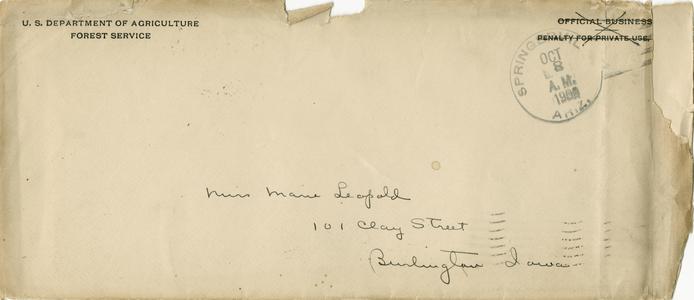 U. S. DEPARTMENT OF AGRICULTURE
FOREST SERVICE
OFFICIAL BUSINESS
PENALTY FOR PRIVATE USE,
SPRINGERVILLE
OCT
8
A.M.
1909
ARIZ.
Miss Marie Leopold
101 Clay Street
Burlington Iowa